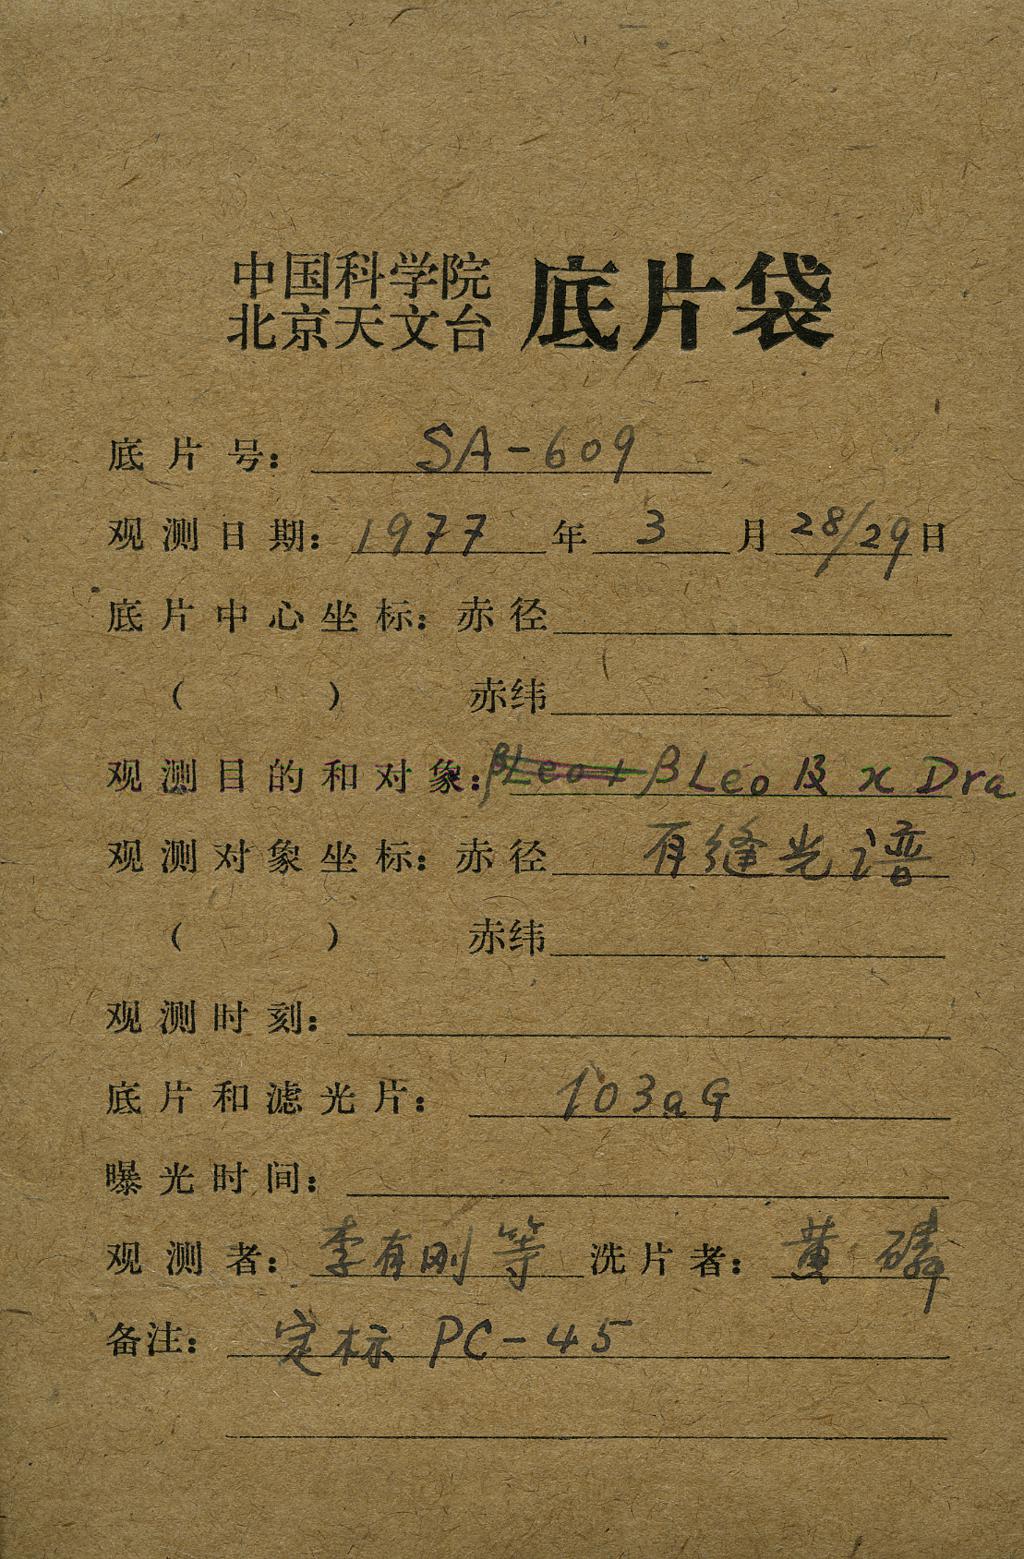 中国科学院
北京天文台 底片袋
底片号: SA-609
观测日期: 1977 年 3 月 28/29 日
底片中心坐标: 赤径
( ) 赤纬
观测目的和对象: βLeo+ β Leo 及 x Dra
观测对象坐标: 赤径 有缝光谱
( ) 赤纬
观测时刻:
底片和滤光片: 103aG
曝光时间:
观测者: 李有刚 等 洗片者: 黄磷
备注: 定标 PC-45